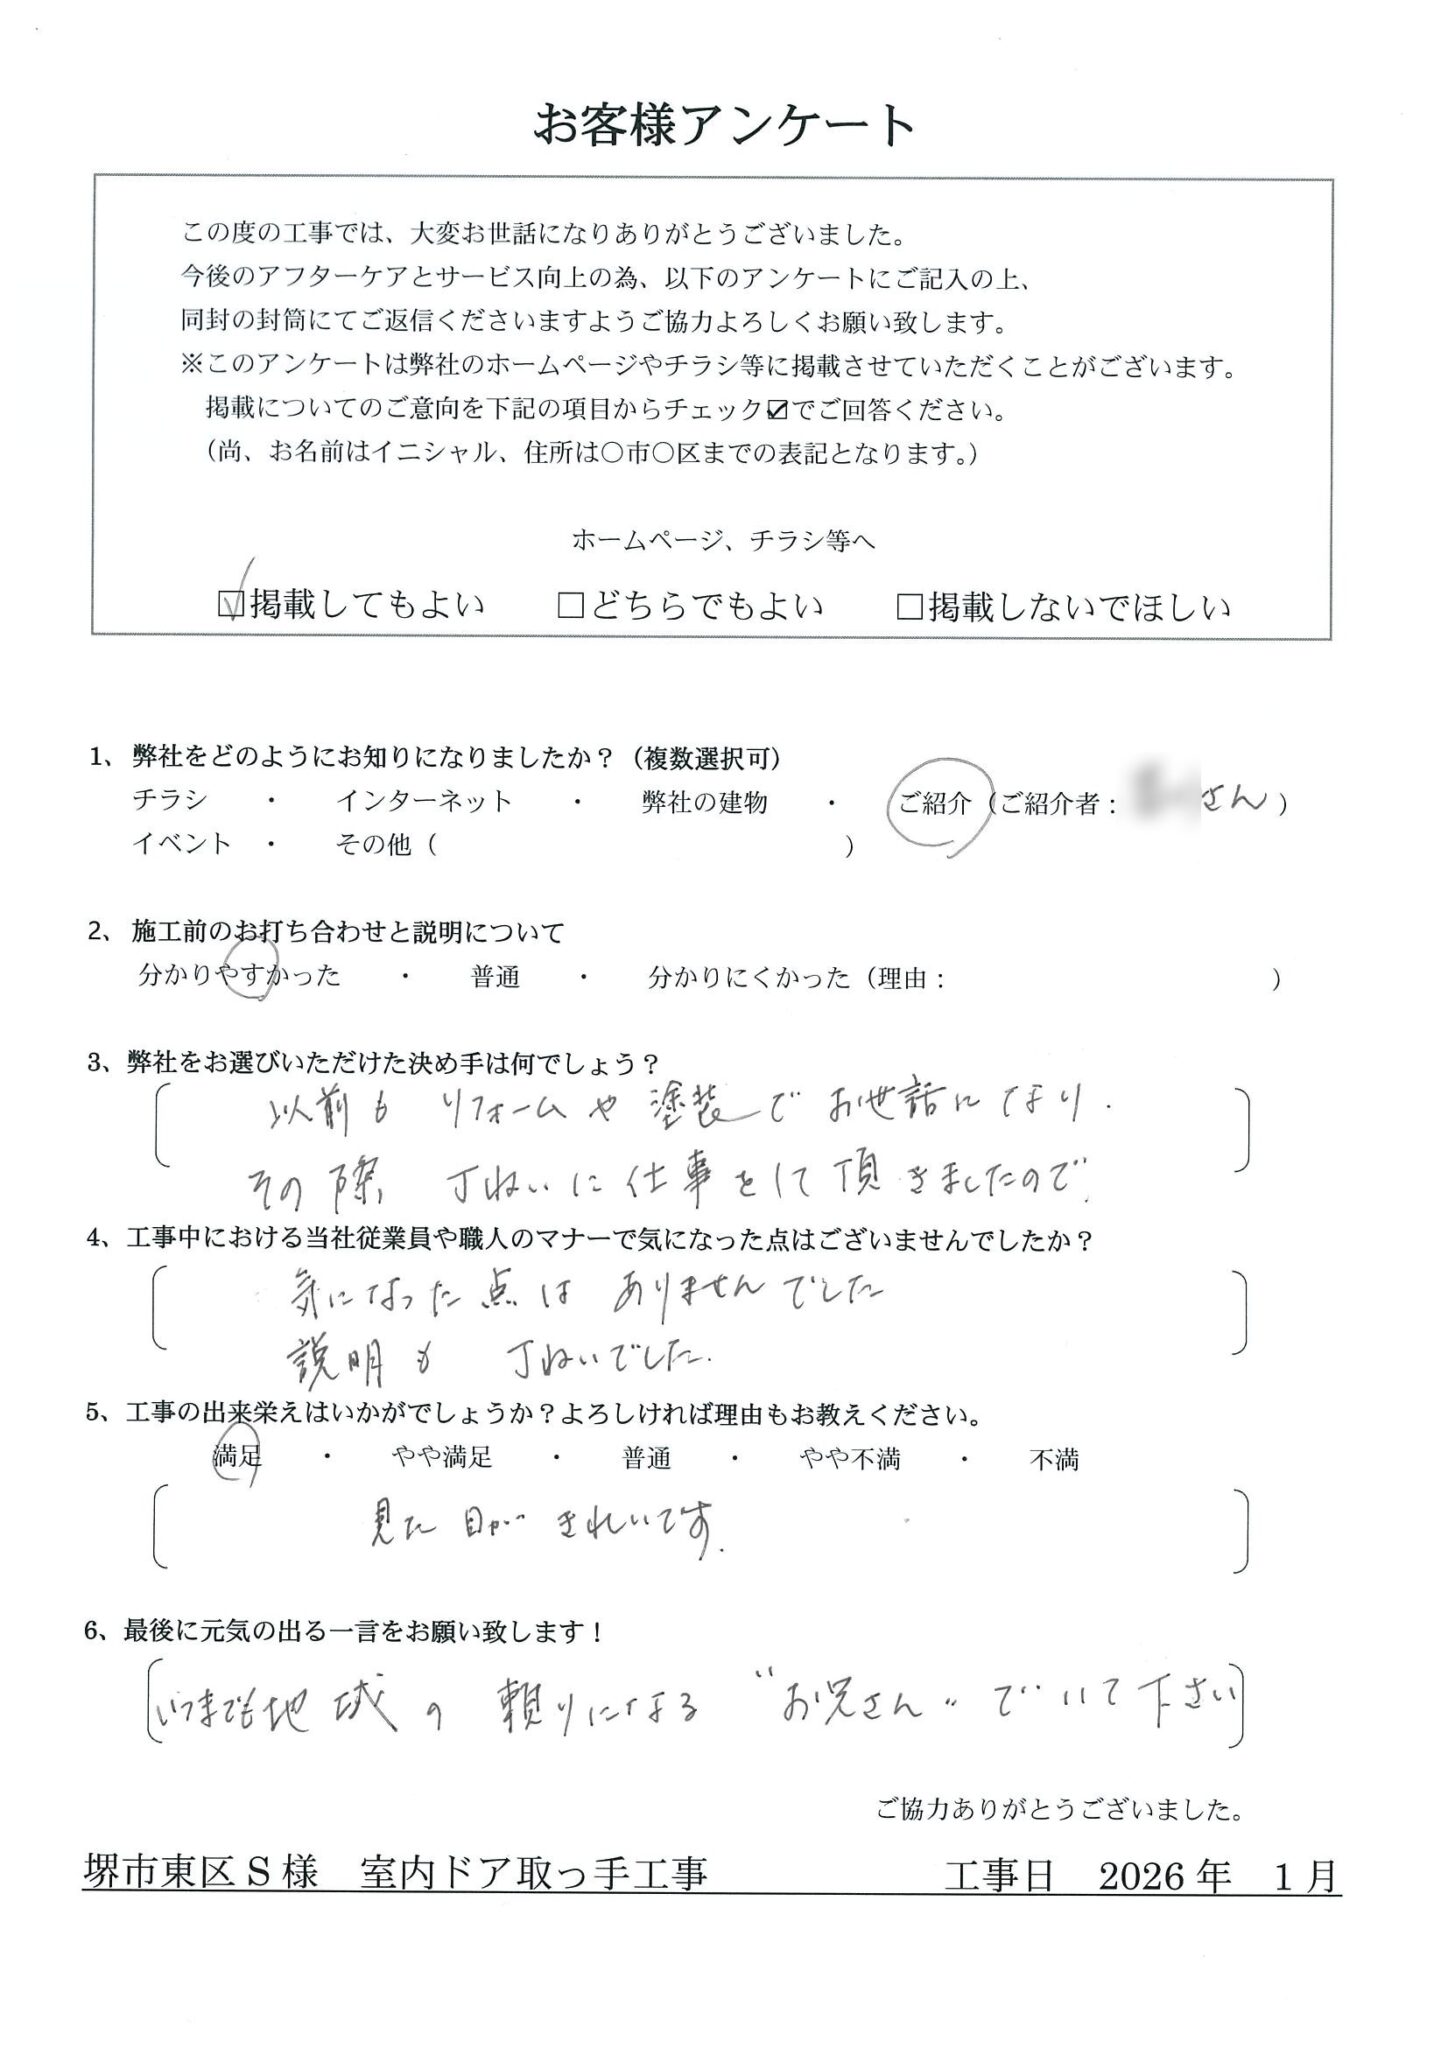 お客様アンケート
この度の工事では、大変お世話になりありがとうございました。
今後のアフターケアとサービス向上の為、以下のアンケートにご記入の上、
同封の封筒にてご返信くださいますようご協力よろしくお願い致します。
※このアンケートは弊社のホームページやチラシ等に掲載させていただくことがございます。
掲載についてのご意向を下記の項目からチェック☑でご回答ください。
（尚、お名前はイニシャル、住所は〇市〇区までの表記となります。）
ホームページ、チラシ等へ
☑掲載してもよい　□どちらでもよい　□掲載しないでほしい
1、弊社をどのようにお知りになりましたか？（複数選択可）
チラシ ・ インターネット ・ 弊社の建物 ・ ご紹介（ご紹介者： さん）
イベント ・ その他（ ）
2、施工前のお打ち合わせと説明について
分かりやすかった ・ 普通 ・ 分かりにくかった（理由： ）
3、弊社をお選びいただけた決め手は何でしょう？
以前も リフォームや塗装でお世話になり.
その際、丁ねいに仕事をして頂きましたので.
4、工事中における当社従業員や職人のマナーで気になった点はございませんでしたか？
気になった点は ありませんでした
説明も 丁ねいでした.
5、工事の出来栄えはいかがでしょうか？よろしければ理由もお教えください。
満足 ・ やや満足 ・ 普通 ・ やや不満 ・ 不満
見た目が きれいです.
6、最後に元気の出る一言をお願い致します！
いつまでも地域の 頼りになる "お兄さん" でいて下さい
ご協力ありがとうございました。
堺市東区 S 様　室内ドア取っ手工事　工事日　2026 年　1 月